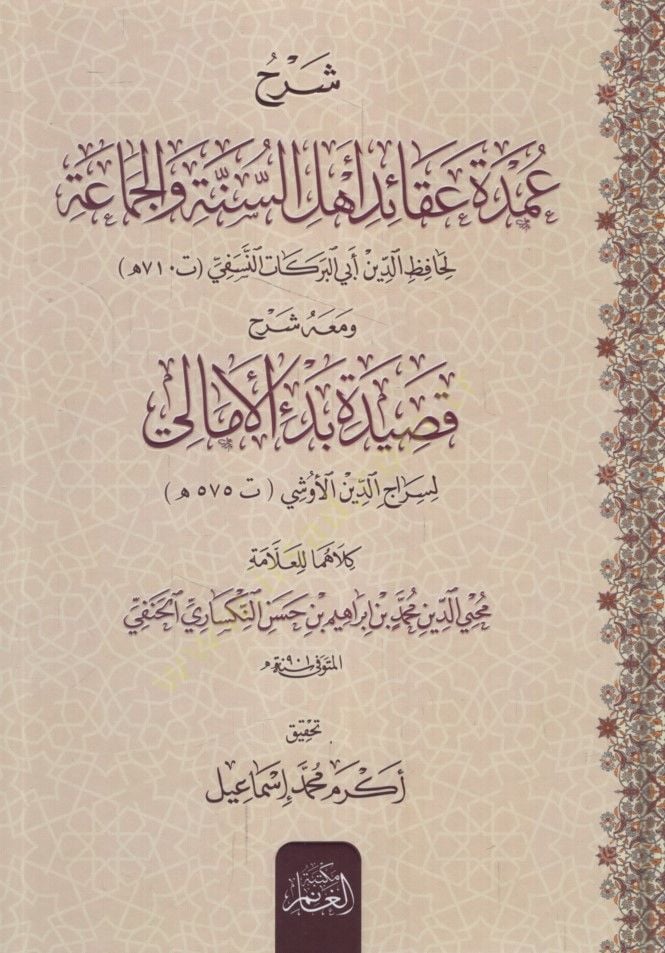 شَرْحُ
عُمْدَةِ عَقَائِدِ أَهْلِ السُّنَّةِ وَالْجَمَاعَةِ
لِحَافِظِ الدِّيْنِ أَبِي البَرَكَاتِ النَّسَفِيِّ (ت ٧١٠هـ)
وَمَعَهُ شَرْحُ
قَصِيْدَةِ بَدْءِ الأَمَالِي
لِسِرَاجِ الدِّيْنِ الأُوْشِي (ت ٥٧٥ هـ)
كِلَاهُمَا لِلعَلَّامَةِ
مُحْيِي الدِّيْنِ مُحَمَّدِ بْنِ إِبرَاهِيمَ بْنِ حَسَنِ النِّكْسَارِيِّ الحَنَفِيِّ
المتوفى سنة ٩٠١ هـ
تحقيق
أَكْرَم مُحَمَّد إِسْمَاعِيل
مكتبة
الغانم